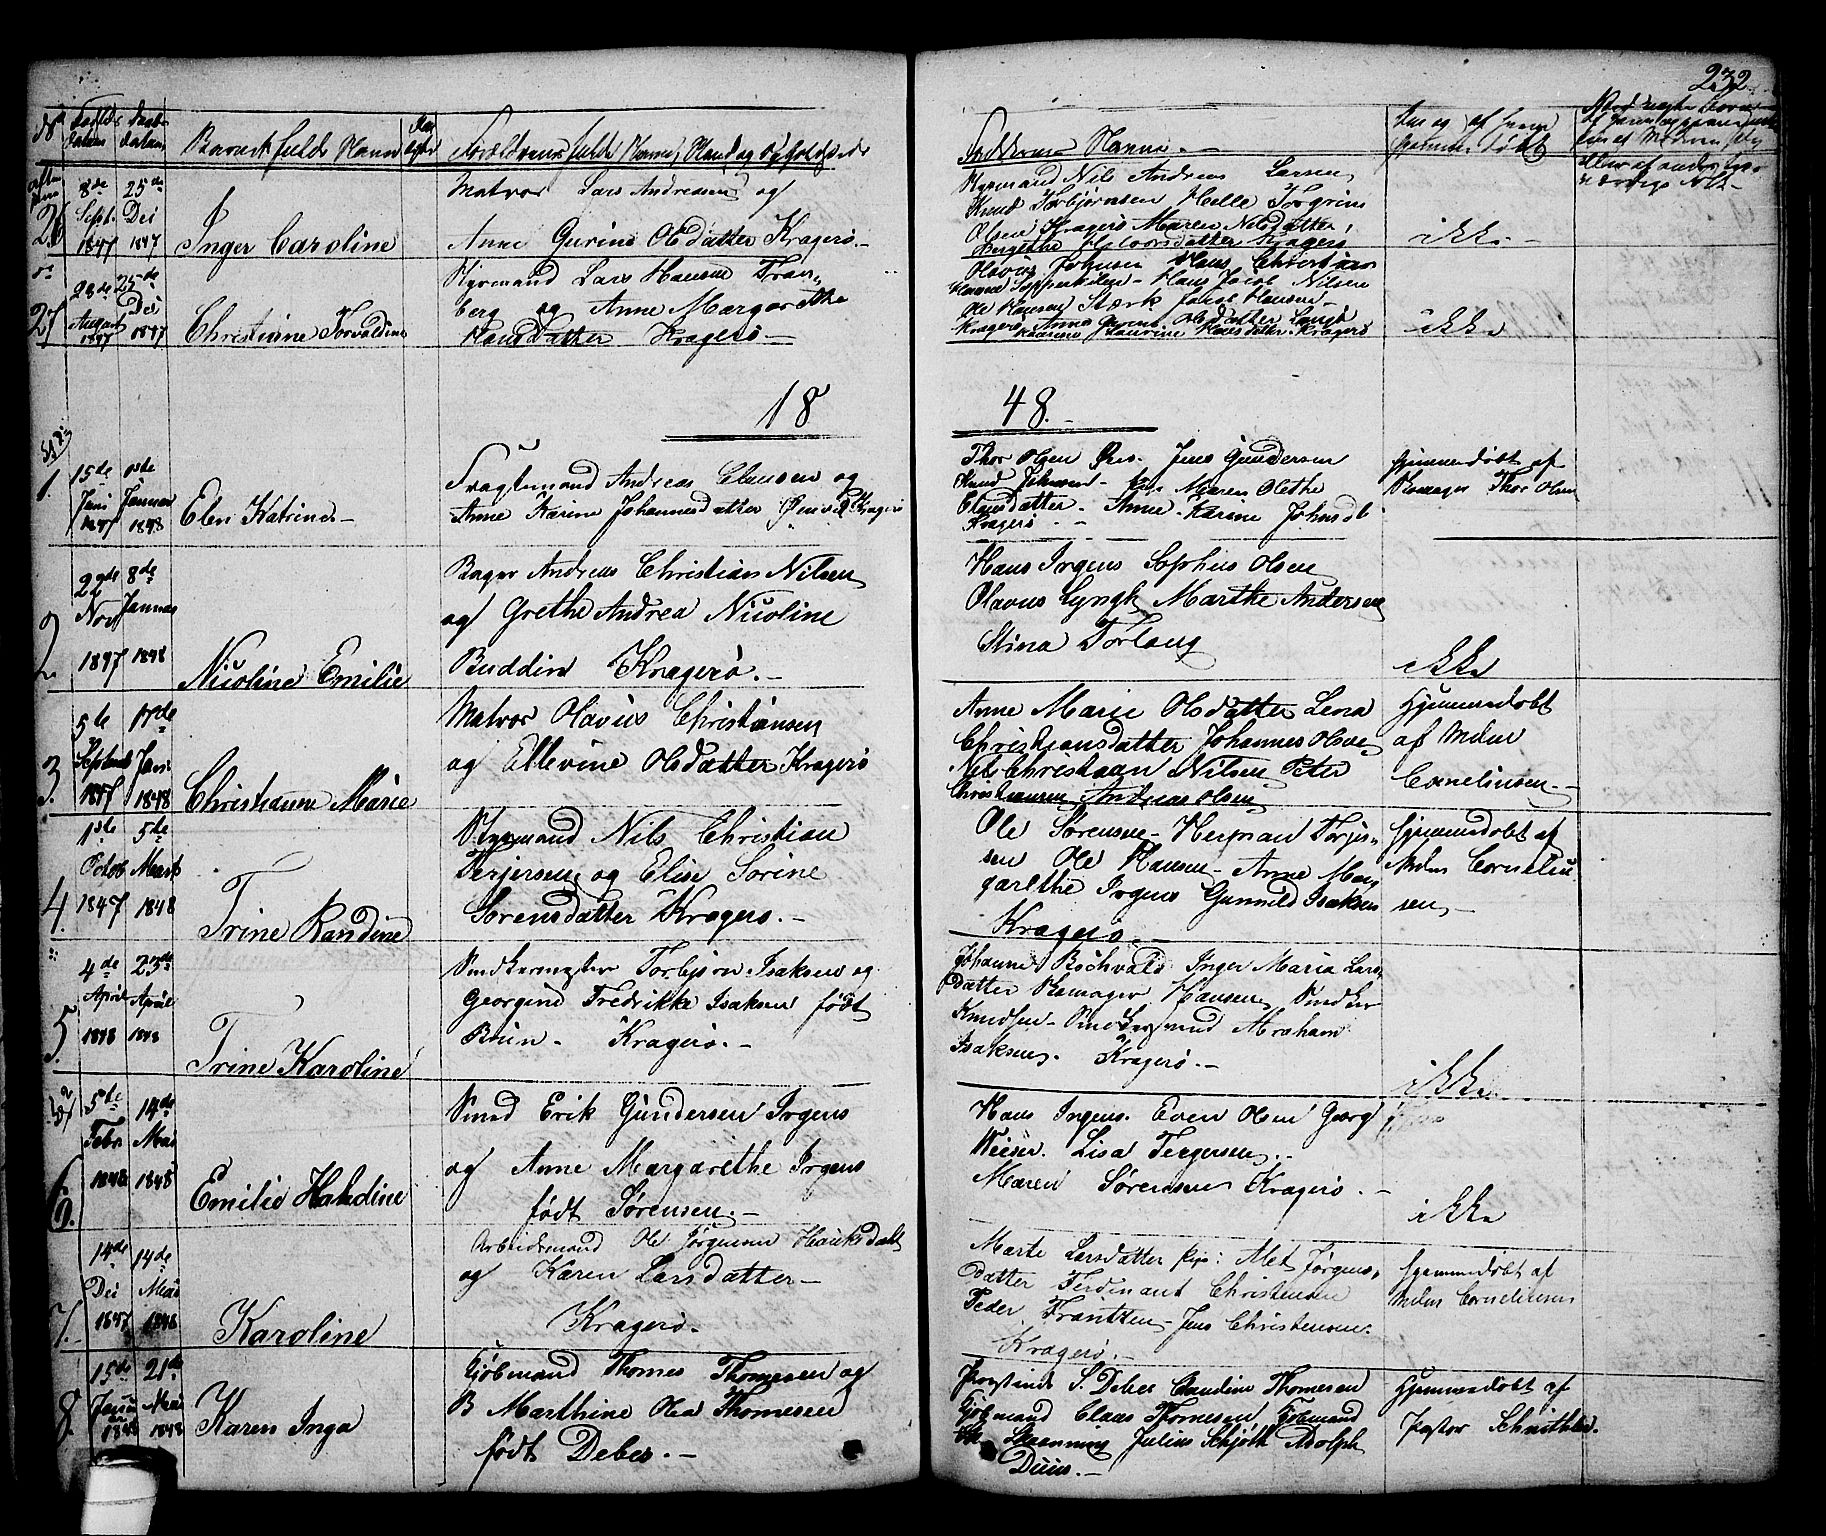 232
Barnets fulde Navn
Forældrenes fulde Navne, Stand og
Faddernes Navne.
26
8de Sept. 1847
25de Dec 1847
Inger Caroline
Matros Lars Andreasen og
Anne Gurine Olsdatter Kragerø.
Styrmand Nils Andreas Larsen,
Knud Torbjørnsen Helle Torgrim
Olsen Kragerø Maren Nilsdatter,
Kragerø
ikke
27
28de August 1847
25de Dec 1847
Christine Torvaldine
Styrmand Lars Hansen Tran-
berg og Anne Margarethe
Hansdatter Kragerø
Olavus Johnsen Hans Christian
Hansen - Hans Jacob Nilsen
Ole Hansen Stærk Jacob Hansen
Kragerø
ikke
1848.
1.
15de Juni 1847
Januar 1848
Elen Katrine
Fragtemand Andreas Clausen og
Anne Karine Johannesdatter Kragerø
Thor Olsen Jens Gundersen
Knud Johnsen Maren Olethe
Clausdatter. Anne Karene
Kragerø
hjemmedøbt af
Thor Olsen
2
22de Nov 1847
8de Januar 1848
Nicoline Emilie
Bager Andreas Christian Nilsen
og Grethe Andrea Nicoline
Buddin Kragerø.
Hans Irgens Sophus Olsen
Olavus Lyngk Marthe Andersen
Stina
ikke
3.
5te September 1847
17de Jan 1848
Christiane Marie
Matros Olavus Christiansen
og Ellevine Olsdatter Kragerø
Anne Marie Olsdatter Lena
Christiansdatter Johannes Olsen
Nils Christian Nilsen Peter
Christiansen Andreas Olsen
hjemmedøbt
af Mdm
Cornelinsen.
4.
1ste Octob 1847
5de Marts 1848
Trine Randine
Styrmand Nils Christian
Terjersen og Elise Sorine
Sorensdatter Kragerø.
Ole Sørensen Herman Torjus-
sen Ole Hansen Anne Mar-
garethe Irgens Gunnild Isaksen
Kragerø.
hjemmedøbt af
Mdm Corneliu
sen
5.
4de April 1848
23de April 1848
Trine Karoline
Smedkermester Torbjørn Isaksen og
Georgine Fredrikke Isaksen født
Brun. Kragerø.
Johanne Inger Maria Lars-
datter Hansen
Knudsen Abraham
Isaksen. Kragerø.
ikke
6.
5de Febr 1848
14de Mai 1848
Emilie Halvdine
Smed Erik Gundersen Irgens
og Anne Margarethe Irgens
født Sørensen.
Hans Irgens. Even Olsen Georg
Weiser. Lisa Tergersen.
Maren Sørensen Kragerø.
ikke
7.
14de Dec 1847
14de Mai 1848
Karoline
Arbeidsmand Ole Jørgensen
og Karen Larsdatter
Kragerø.
Marte Larsdatter Met Jørgens-
datter Ferdinant Christensen
Peder Frantzen Jens Christensen.
Kragerø.
hjemmedøbt af
Mdm Cornelinsen
8.
15de Januar 1848
21de Mai 1848
Karen Inga
Kjøbmand Thomes Thomesen og
Marthine Olea Thomesen
født Debes.
S. Debes Claudine Thomesen
Kjøbmand Claus Thomesen Kjøbmand
Julius Schjøth Adolph
Duus.
hjemmedøbt af
Pastor